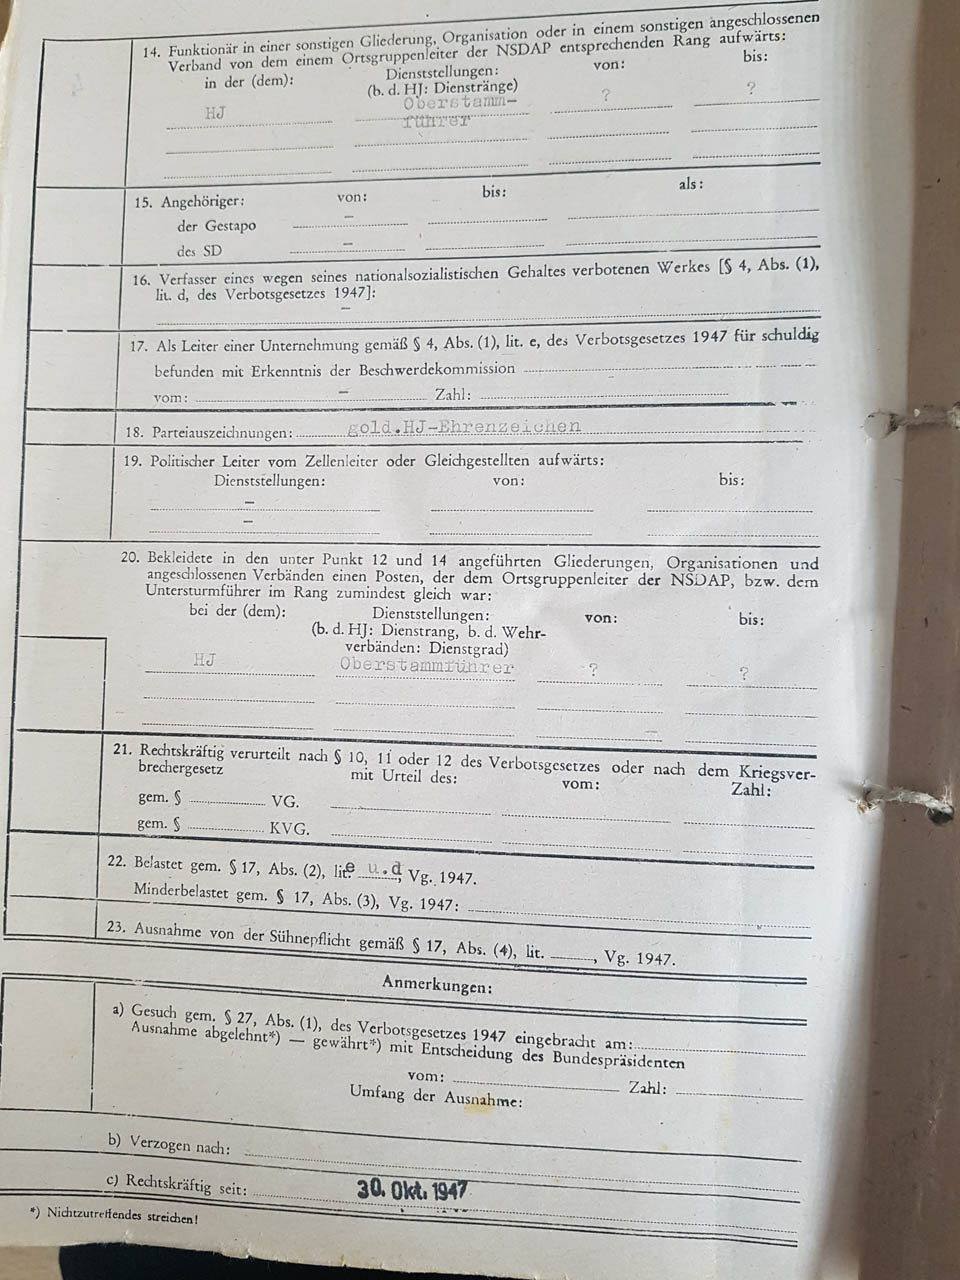 14. Funktionär in einer sonstigen Gliederung, Organisation oder in einem sonstigen angeschlossenen
Verband von dem einem Ortsgruppenleiter der NSDAP entsprechenden Rang aufwärts:
in der (dem): Dienststellungen: von: bis:
(b. d. HJ: Dienstränge)
HJ Oberstamm- ? ?
führer
15. Angehöriger: von: bis: als:
der Gestapo –
des SD –
16. Verfasser eines wegen seines nationalsozialistischen Gehaltes verbotenen Werkes [§ 4, Abs. (1),
lit. d, des Verbotsgesetzes 1947]:
–
17. Als Leiter einer Unternehmung gemäß § 4, Abs. (1), lit. e, des Verbotsgesetzes 1947 für schuldig
befunden mit Erkenntnis der Beschwerdekommission
vom: – Zahl:
18. Parteiauszeichnungen: gold.HJ-Ehrenzeichen
19. Politischer Leiter vom Zellenleiter oder Gleichgestellten aufwärts:
Dienststellungen: von: bis:
–
–
20. Bekleidete in den unter Punkt 12 und 14 angeführten Gliederungen, Organisationen und
angeschlossenen Verbänden einen Posten, der dem Ortsgruppenleiter der NSDAP, bzw. dem
Untersturmführer im Rang zumindest gleich war:
bei der (dem): Dienststellungen: von: bis:
(b. d. HJ: Dienstrang, b. d. Wehr-
verbänden: Dienstgrad)
HJ Oberstammführer ? ?
21. Rechtskräftig verurteilt nach § 10, 11 oder 12 des Verbotsgesetzes oder nach dem Kriegsver-
brechergesetz mit Urteil des: vom: Zahl:
gem. § VG.
gem. § KVG.
22. Belastet gem. § 17, Abs. (2), lit. e u.d, Vg. 1947.
Minderbelastet gem. § 17, Abs. (3), Vg. 1947:
23. Ausnahme von der Sühnepflicht gemäß § 17, Abs. (4), lit. , Vg. 1947.
Anmerkungen:
a) Gesuch gem. § 27, Abs. (1), des Verbotsgesetzes 1947 eingebracht am:
Ausnahme abgelehnt*) — gewährt*) mit Entscheidung des Bundespräsidenten
vom: Zahl:
Umfang der Ausnahme:
b) Verzogen nach:
c) Rechtskräftig seit: 30. Okt. 1947
*) Nichtzutreffendes streichen!